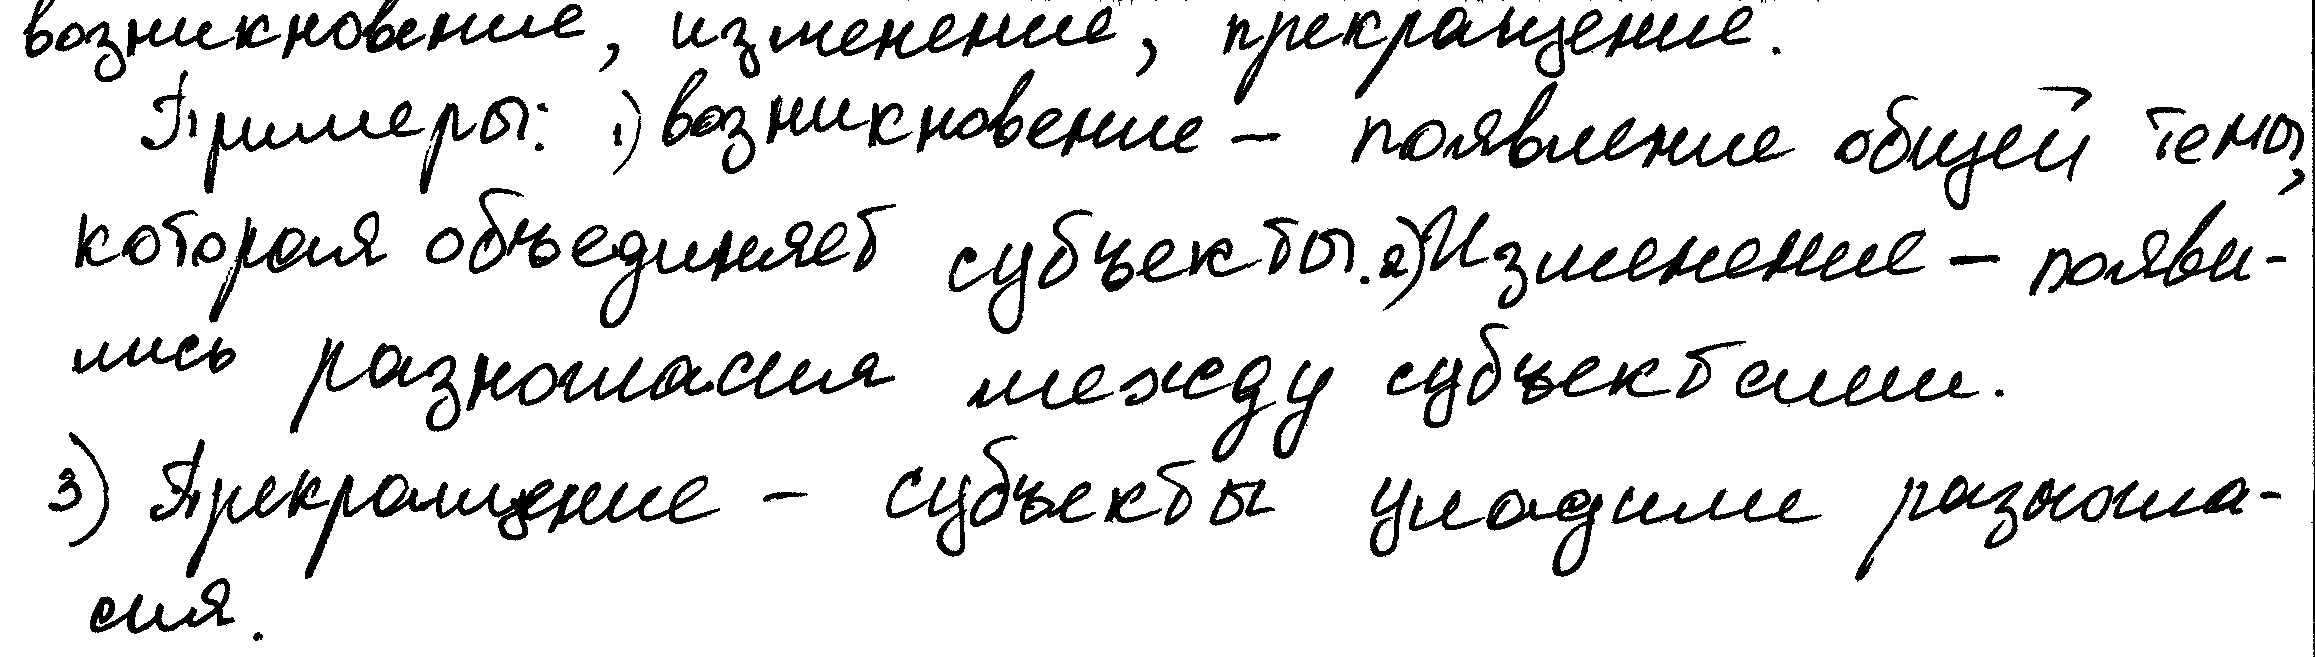 возникновение, изменение, прекращение.
Примеры: 1) возникновение – появление общей темы,
которая объединяет субъекты. 2) Изменение – появи-
лись разногласия между субъектами.
3) Прекращение – субъекты уладили разногла-
сия.